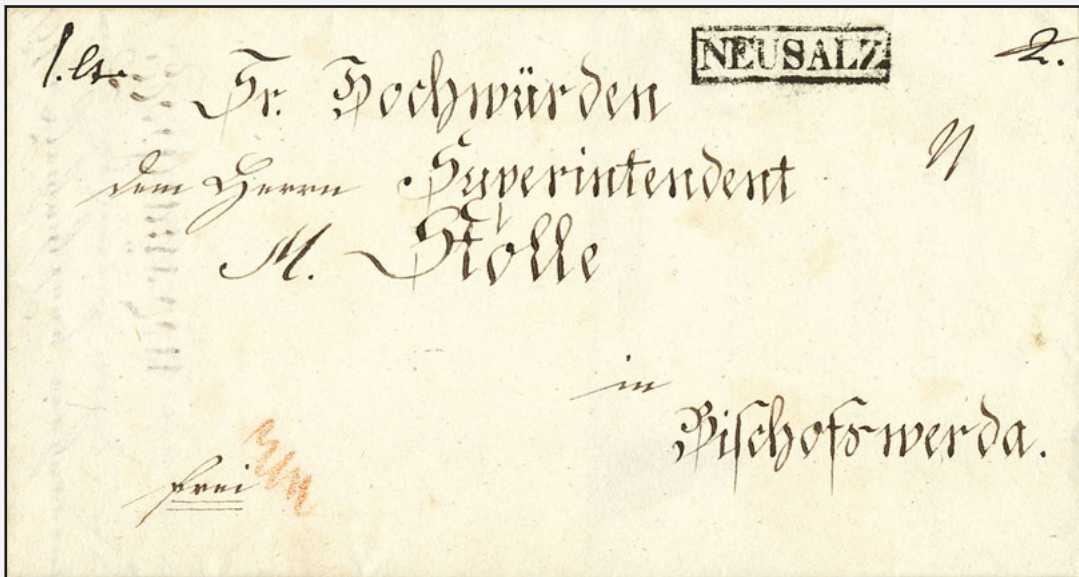 NEUSALZ
2.
Sr. Hochwürden
dem Herrn Superintendent
M. Stolle
in
Bischofswerda.
frei